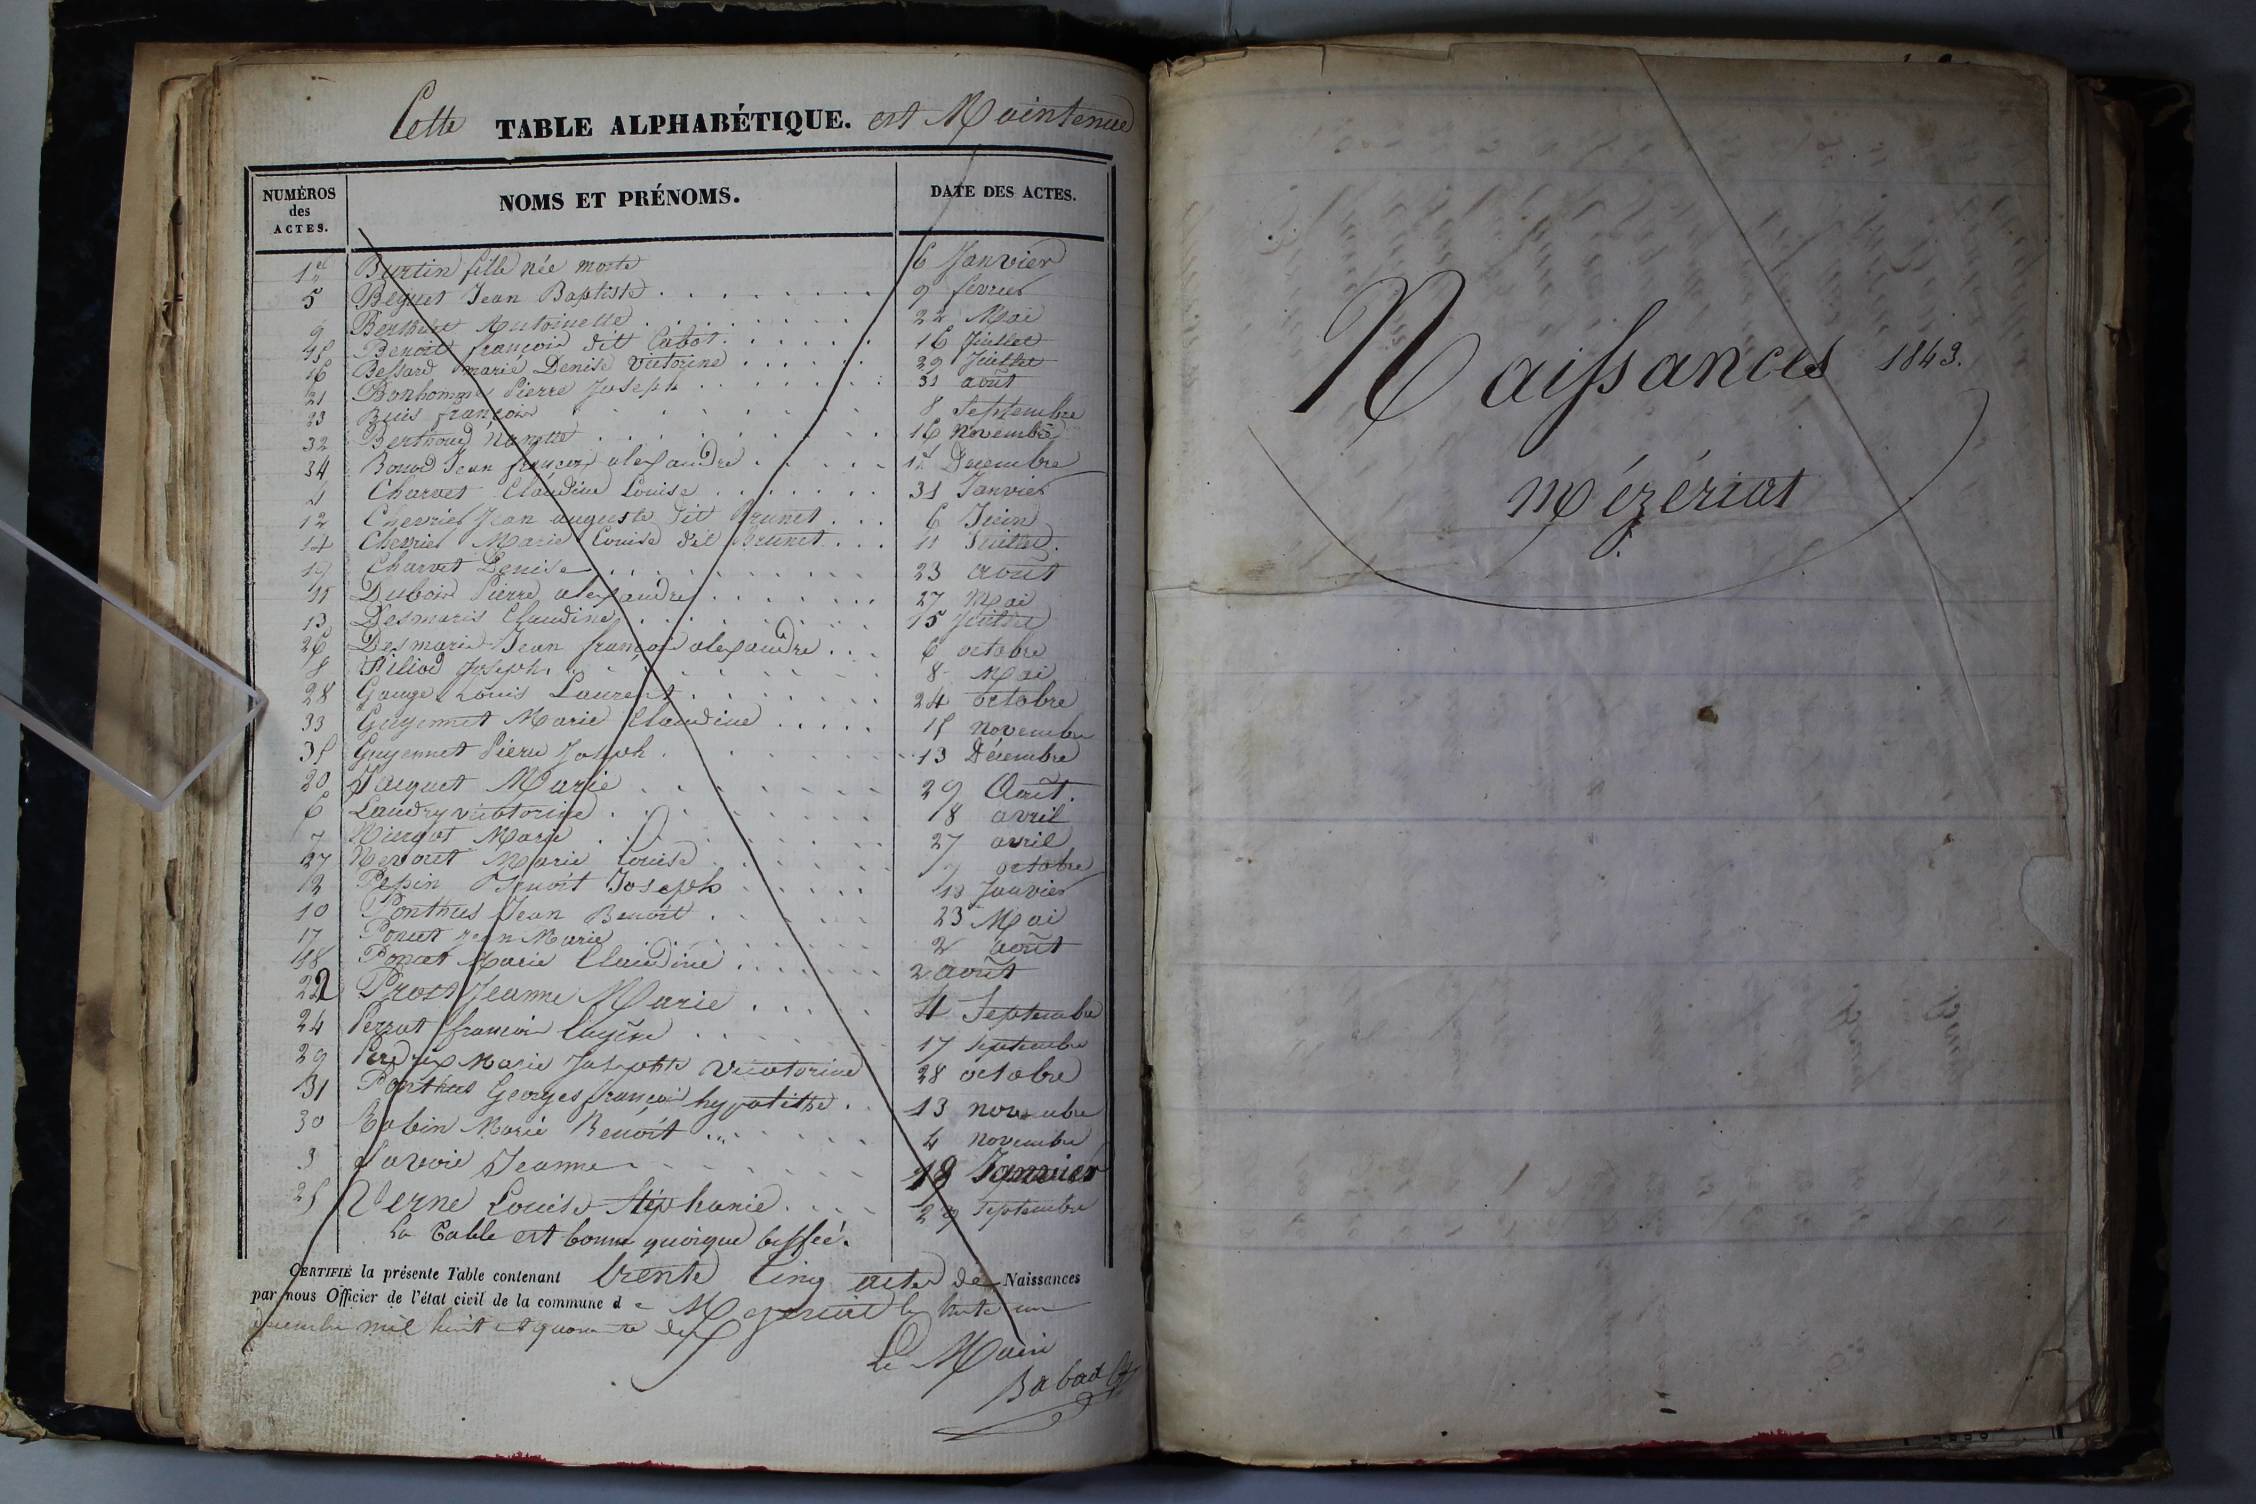 Cette TABLE ALPHABÉTIQUE. est Maintenue
NUMÉROS des ACTES. NOMS ET PRÉNOMS. DATE DES ACTES.
1er Burtin fille née morte 6 Janvier
5 Béguet Jean Baptiste 9 février
9 Antoinette 22 Mai
15 Benoit françois dit Cabot 16 Juillet
16 Bessard marie Denise Victorine 29 Juillet
21 Bonhomme Pierre Joseph 31 août
23 Buis françois 8 Septembre
32 Berthoud Nanette 16 Novembre
34 Jean françois alexandre 1er Décembre
4 Charvet Claudine Louise 31 Janvier
12 Chevrier Jean auguste dit Brunet 6 Juin
14 Chevrier Marie Louise dit Brunet 11 Juillet
19 Charvet Denise 23 août
11 Dubois Pierre alexandre 27 Mai
13 Desmaris Claudine 15 Juillet
26 Desmaris Jean françois alexandre 6 octobre
8 Joseph 8 Mai
28 Gauge Louis Laurent 24 octobre
33 Guyennet Marie Claudine 18 novembre
35 Guyennet Pierre Joseph 13 Décembre
20 Jacquet Marie 29 Août
6 Landry victorine 18 avril
7 Marie 27 avril
27 Marie Louise octobre
2 Pepin Benoit Joseph 13 Janvier
10 Ponthus Jean Benoit 23 Mai
17 Poncet Jean Marie 2 août
18 Poncet Marie Claudine 2 août
22 Prost Jeanne Marie 4 Septembre
24 Perrat françois Eugène 17 Septembre
29 Perdrix Marie Josephte Victorine 28 octobre
31 Ponthus Georges françois hypolithe 13 novembre
30 Robin Marie Benoit 4 novembre
3 Savoie Jeanne 18 Janvier
25 Verne Louise Stéphanie 29 Septembre
La Table est bonne quoique biffée.
CERTIFIÉ la présente Table contenant trente Cinq actes de Naissances
par nous Officier de l'état civil de la commune de Mézériat le trente un
décembre mil huit cent quarante deux
Le Maire
Babad
Naissances 1843.
Mézériat